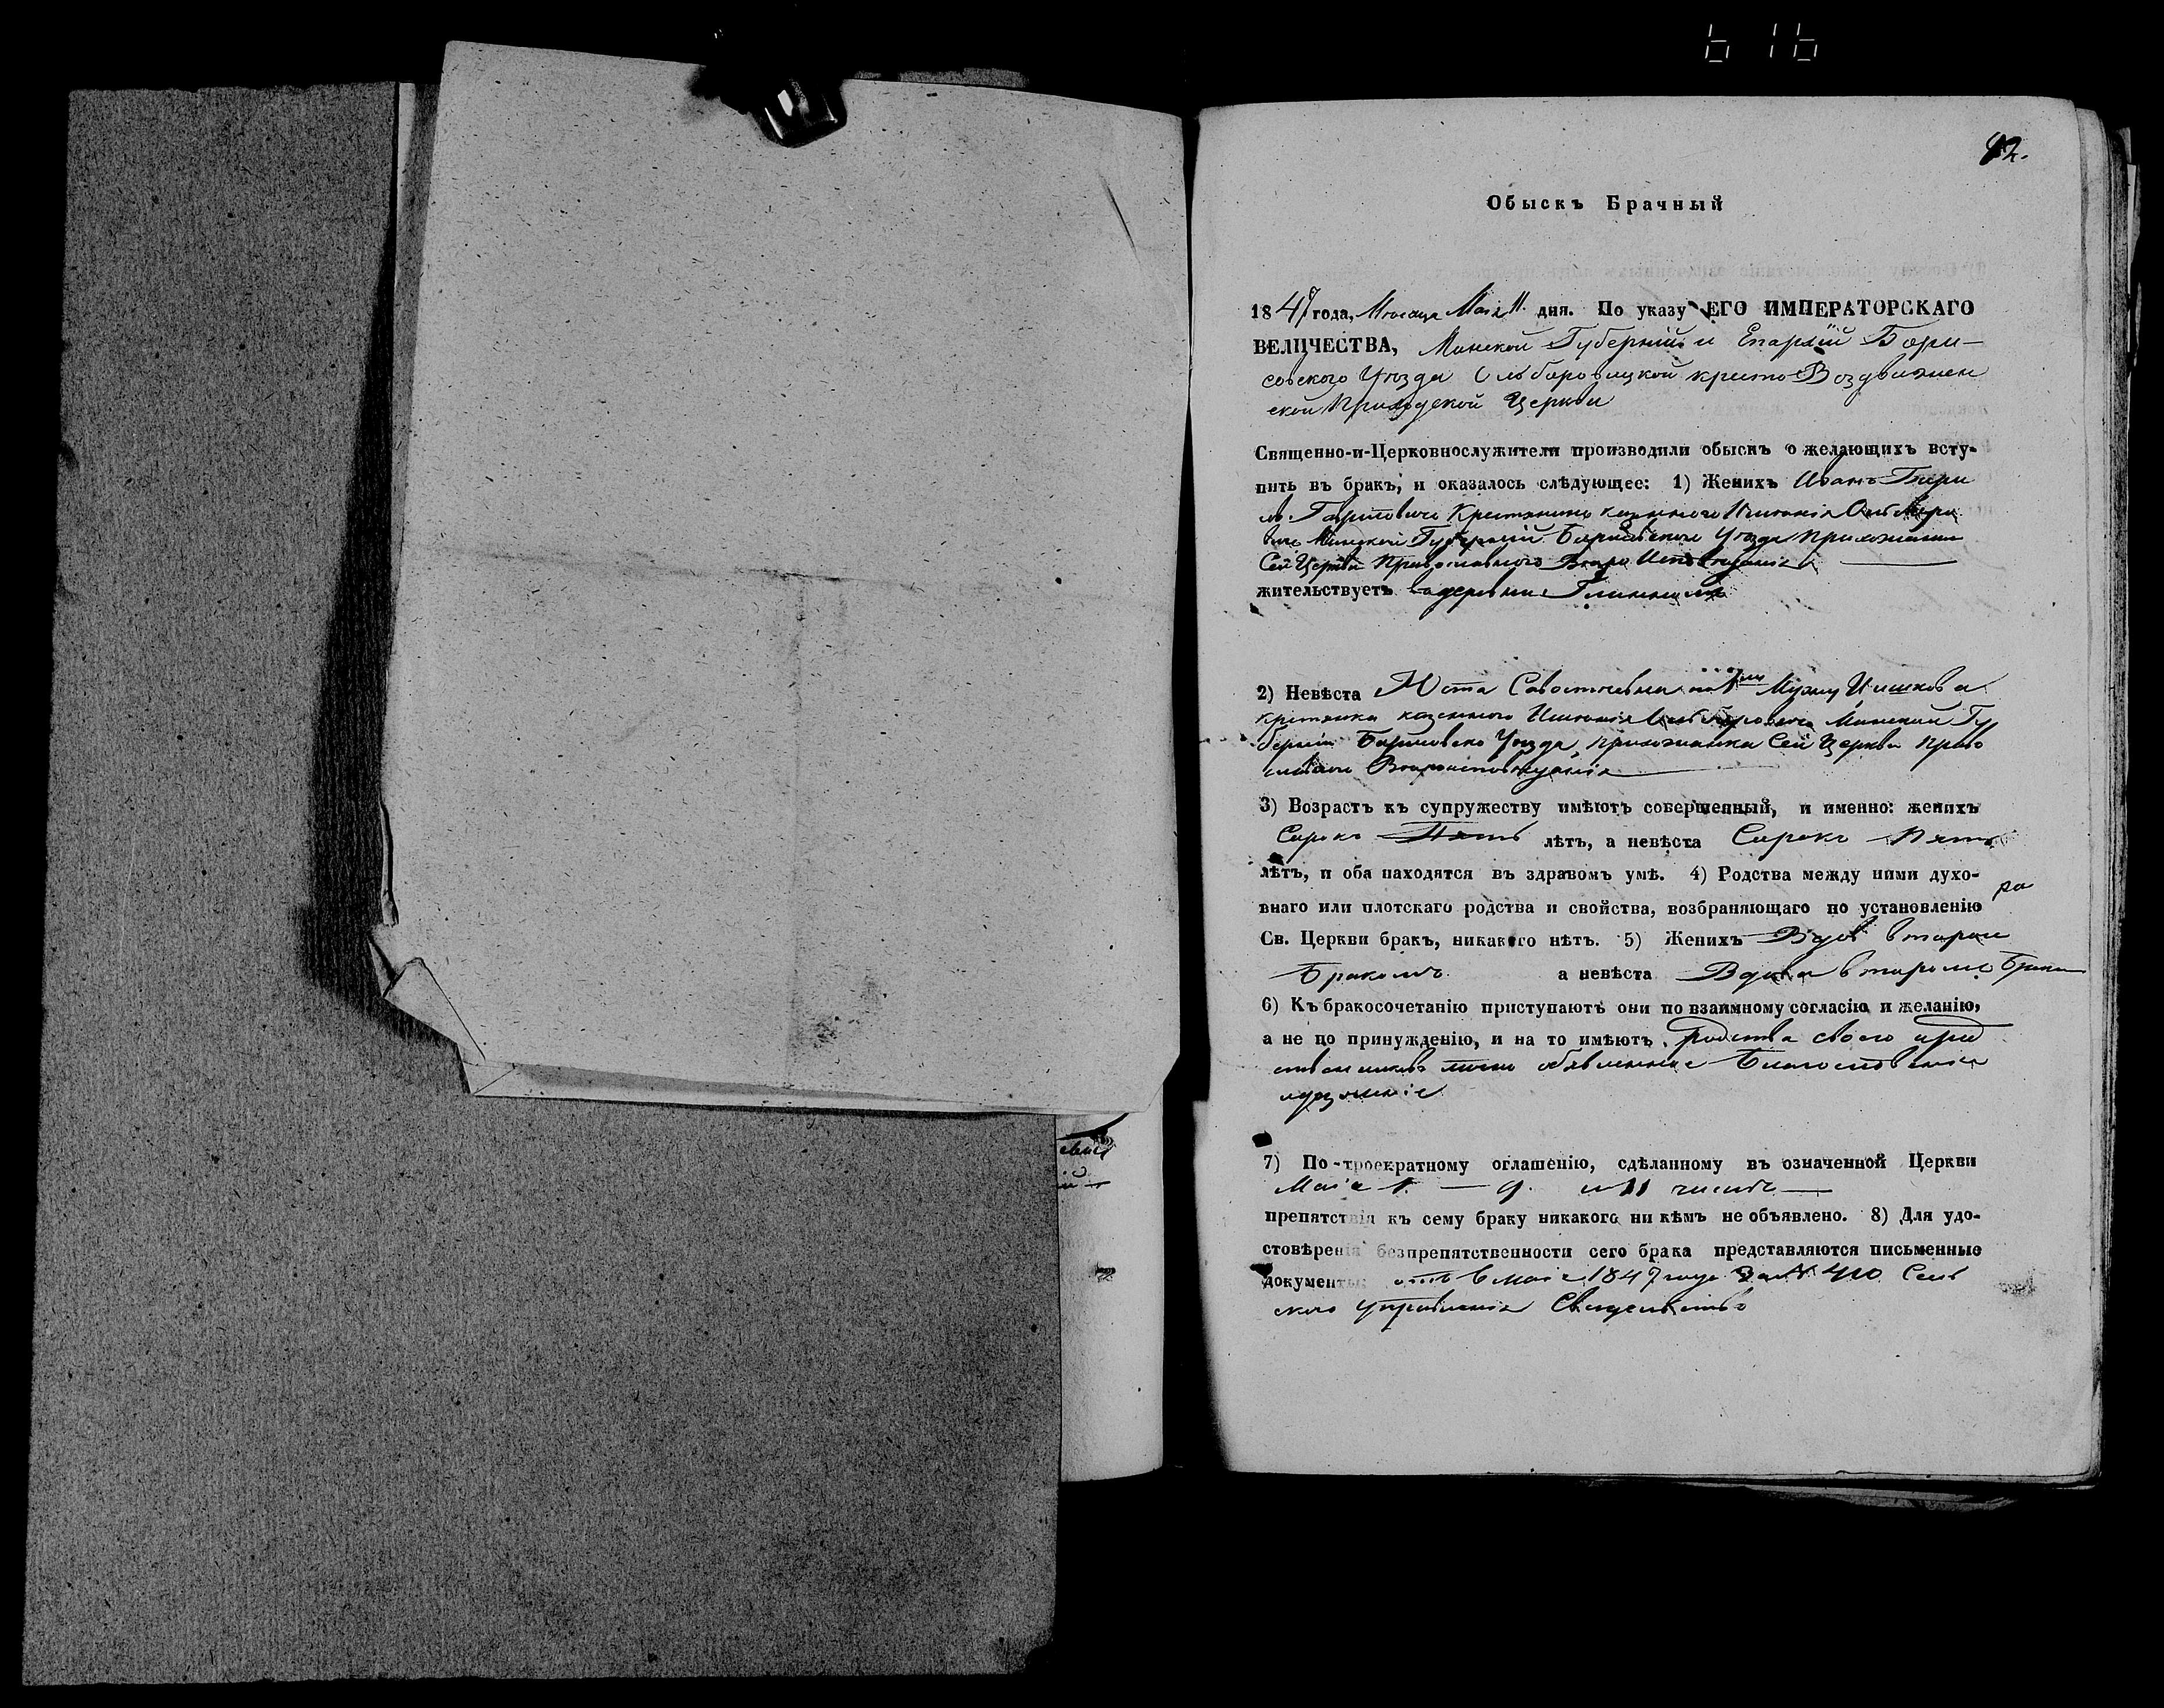 42.
Обыскъ Брачный
1847 года, Месяца Маія 11 дня. По указу ЕГО ИМПЕРАТОРСКАГО
ВЕЛИЧЕСТВА, Минской Губерніи и Епархіи Бори-
совского Уѣзда Ольберовицкой кресто Воздвижен
ской Приходской Церкви
Священно-и-Церковнослужители производили обыскъ о желающихъ всту-
пить въ бракъ, и оказалось слѣдующее: 1) Женихъ Иванъ
Крестьянинъ казенного Имѣнія
Минской Губерніи Борисовского Уѣзда Прихожанин
Сей Церкви Православного Вѣро Исповѣданія
жительствуетъ в деревни
2) Невѣста Юста Савостеевна по Мужу
крестянка казенного Имѣнія Минской Гу
берніи Борисовско Уѣзда, прихожанка Сей Церкви Право
славного Вѣроисповѣданія
3) Возрастъ къ супружеству имѣютъ совершенный, и именно: женихъ
Сорокъ Пять лѣтъ, а невѣста Сорокъ Пять
лѣтъ, и оба находятся въ здравомъ умѣ. 4) Родства между ними духо-
внаго или плотскаго родства и свойства, возбраняющаго по установленію
Св. Церкви бракъ, никакого нѣтъ. 5) Женихъ Вдов вторым
Бракомъ а невѣста Вдова вторымъ Браком
6) Къ бракосочетанію приступаютъ они по взаимному согласію и желанію,
а не по принужденію, и на то имѣютъ родства своего
объявленное Благословеніе
7) По-троекратному оглашенію, сдѣланному въ означенной Церкви
Маія 1. — 9. и 11 числъ
препятствія къ сему браку никакого ни кѣмъ не объявлено. 8) Для удо-
стовѣренія безпрепятственности сего брака представляются письменные
документы: отъ 6 маія 1847 года За N 410 Сель
ского управленія Свидѣлство